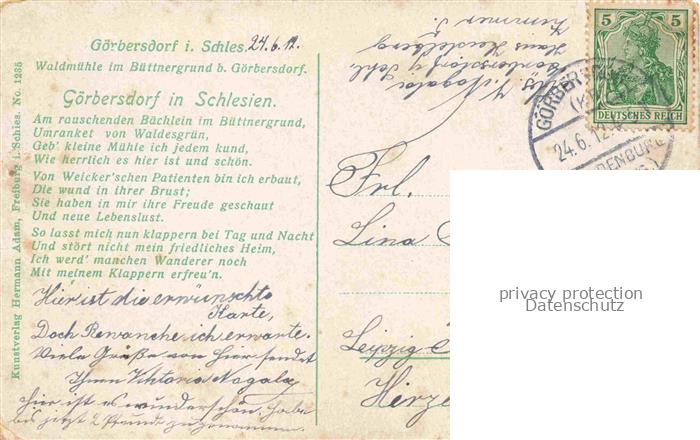 Görbersdorf i. Schles. 24.6.12.
Waldmühle im Büttnergrund b. Görbersdorf.
Görbersdorf in Schlesien.
Am rauschenden Bächlein im Büttnergrund,
Umranket von Waldesgrün,
Geb' kleine Mühle ich jedem kund,
Wie herrlich es hier ist und schön.
Von Weicker'schen Patienten bin ich erbaut,
Die wund in ihrer Brust;
Sie haben in mir ihre Freude geschaut
Und neue Lebenslust.
So lasst mich nun klappern bei Tag und Nacht
Und stört nicht mein friedliches Heim,
Ich werd' manchen Wanderer noch
Mit meinem Klappern erfreu'n.
Hier ist die erwünschte
Karte,
Doch Revanche ich erwarte.
Viele Grüße von hier sendet
Ihnen Viktoria Nagala
hier ist es wunderschön, habe
bis jetzt 2 Pfunde zugenommen.
Kunstverlag Hermann Adam, Freiburg i. Schles. No. 1235
Nagala
Görbersdorf Schl.
Haus Heidelberg
Zimmer 5.
5 5
DEUTSCHES REICH
GÖRBERS
24.6.12
DENBURG
Frl.
Lina
Leipzig
Hirze
privacy protection
Datenschutz